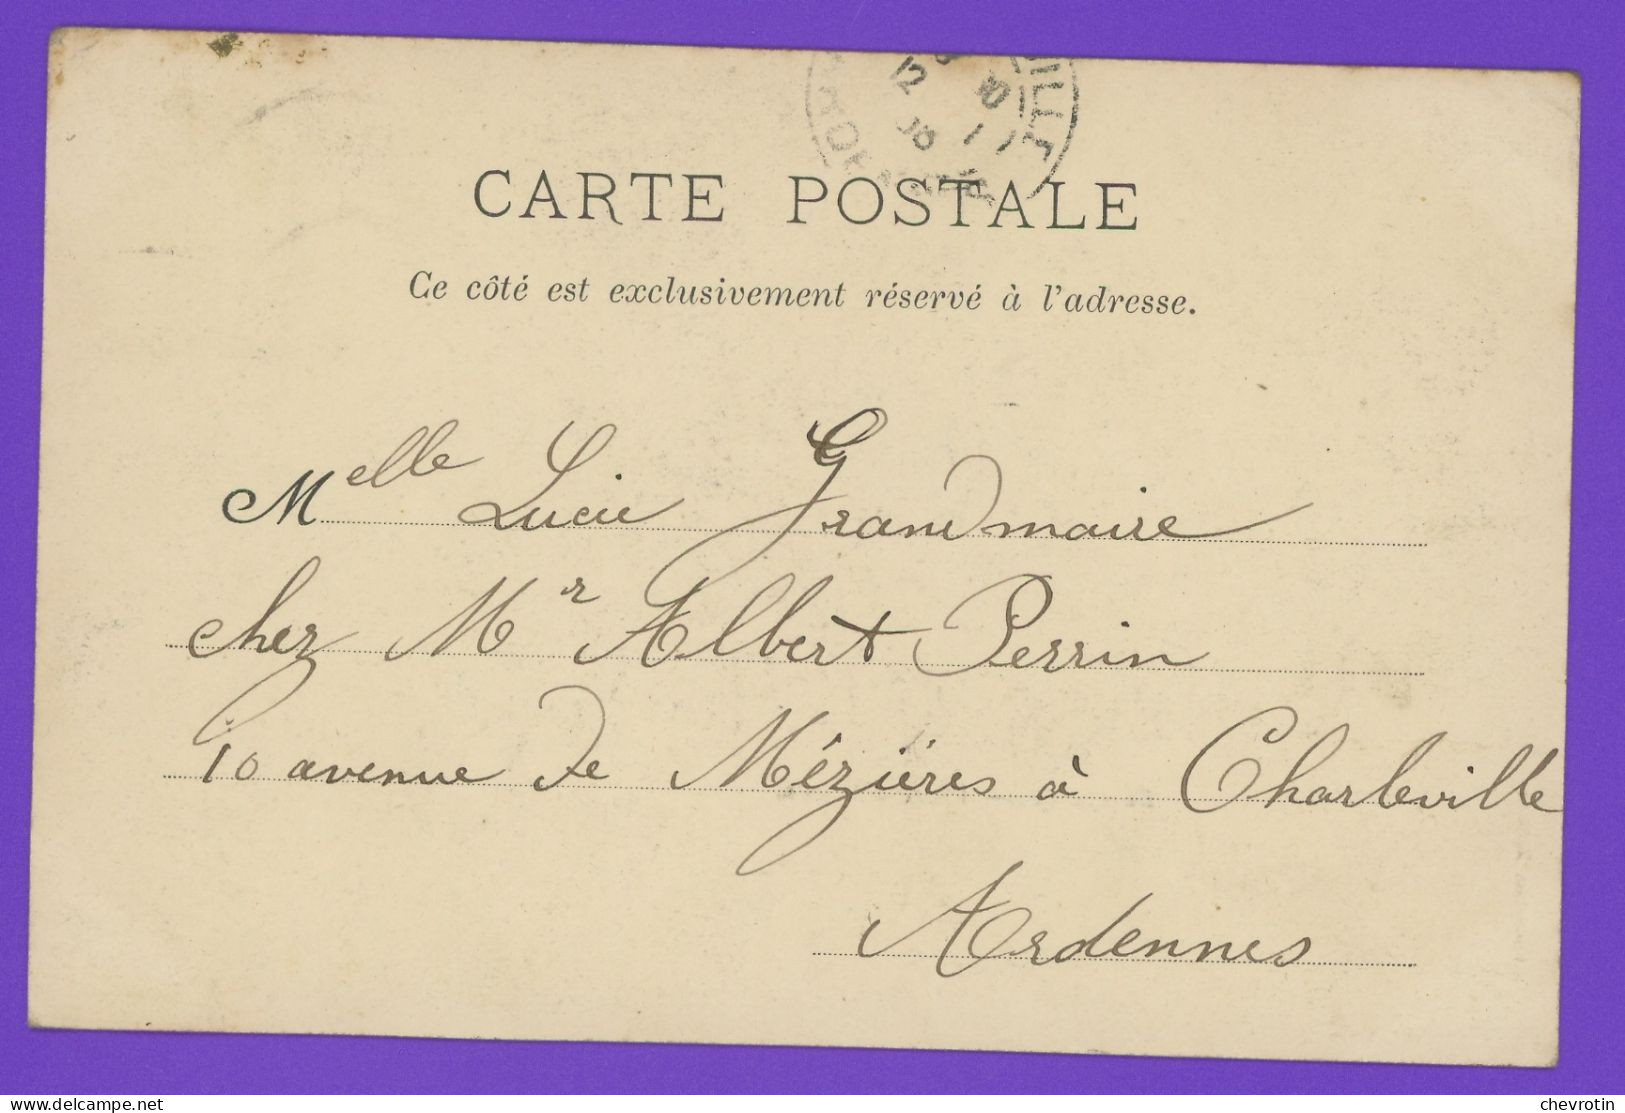 CARTE POSTALE
Ce côté est exclusivement réservé à l'adresse.
Melle Lucie Grandmaire
chez Mr Albert Perrin
10 avenue de Mézières à Charleville
Ardennes
www.delcampe.net
chevrotin